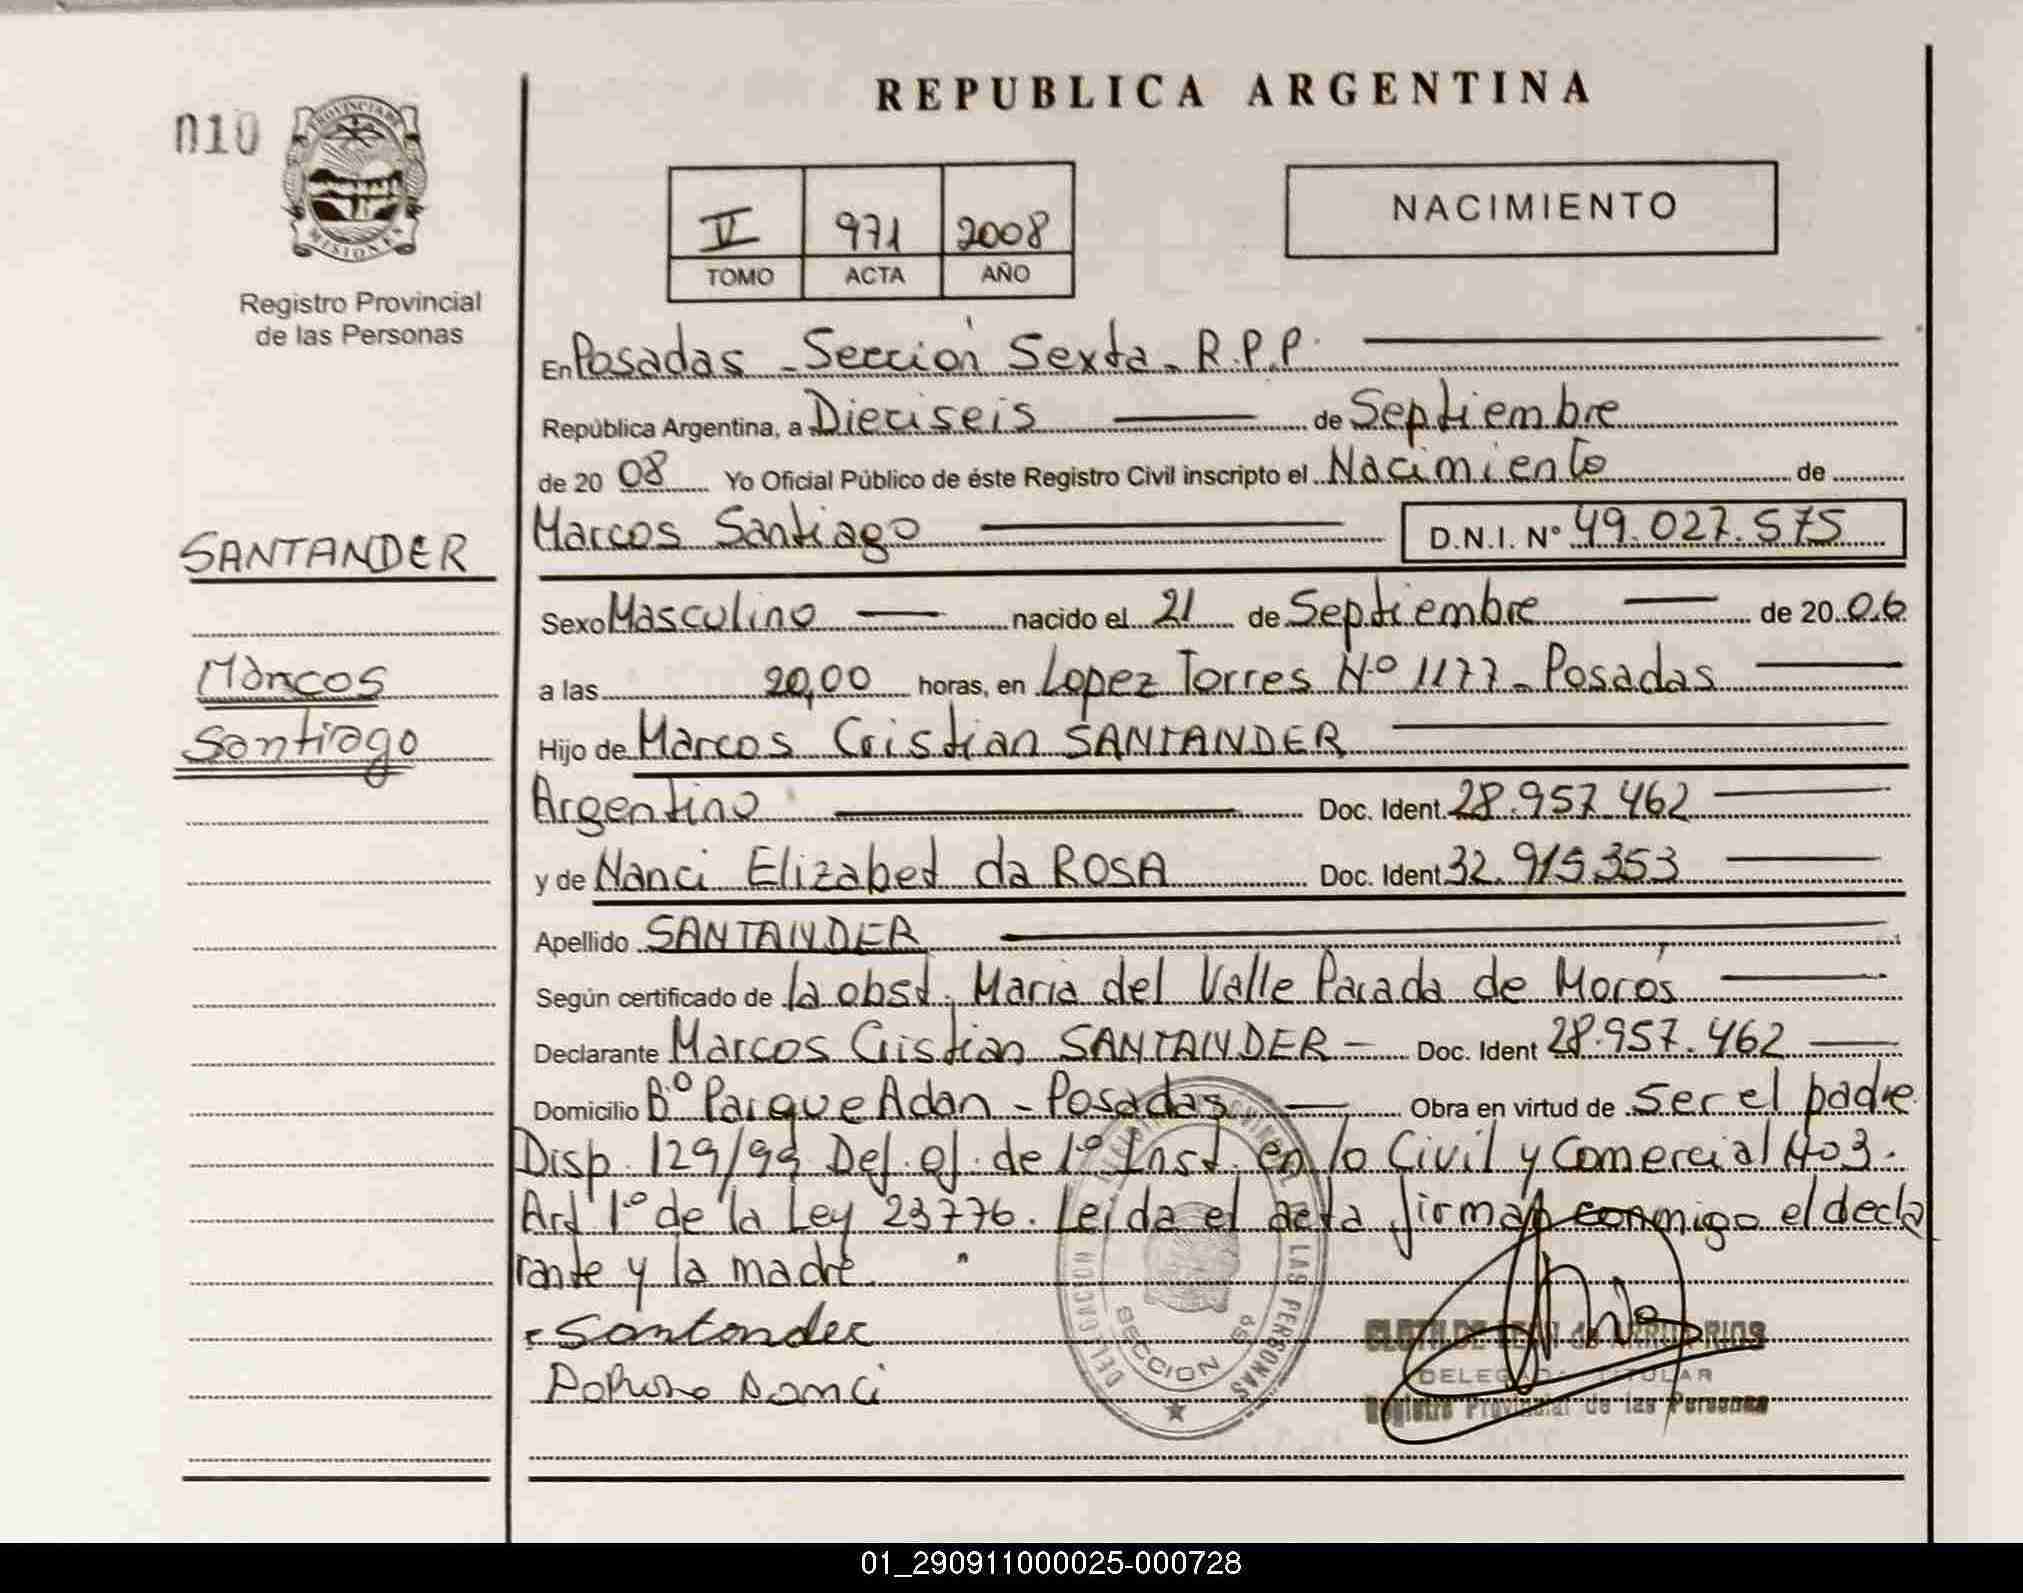 REPUBLICA ARGENTINA
010
PROVINCIA DE
MISIONES
NACIMIENTO
V 971 2008
TOMO ACTA AÑO
Registro Provincial
de las Personas
En Posadas - Sección Sexta - R.P.P.
República Argentina, a Dieciseis de Septiembre
de 20 08 Yo Oficial Público de éste Registro Civil inscripto el Nacimiento de
Marcos Santiago D.N.I. Nº 49.027.575
SANTANDER
Sexo Masculino nacido el 21 de Septiembre de 20 06
Marcos
a las 20,00 horas, en Lopez Torres Nº 1177 - Posadas
Santiago
Hijo de Marcos Cristian SANTANDER
Argentino Doc. Ident. 28.957.462
y de Nanci Elizabet da ROSA Doc. Ident 32.915.353
Apellido SANTANDER
Según certificado de la obst. Maria del Valle Parada de Morós
Declarante Marcos Cristian SANTANDER - Doc. Ident 28.957.462
Domicilio Bº Parque Adan - Posadas Obra en virtud de ser el padre
Disp. 129/99 Def. of. de 1º Inst. en lo Civil y Comercial No 3.
Art 1º de la Ley 23776. Leida el acta firman conmigo el decla
rante y la madre
Santander
Nanci
DELEGACION LAS PERSONAS
SECCION 6ª
CLOTILDE de RIOS
DELEGADA TITULAR
Registro Provincial de las Personas
01_290911000025-000728